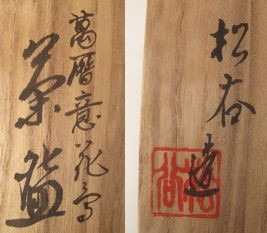 萬暦意花鳥
茶盌
松谷造